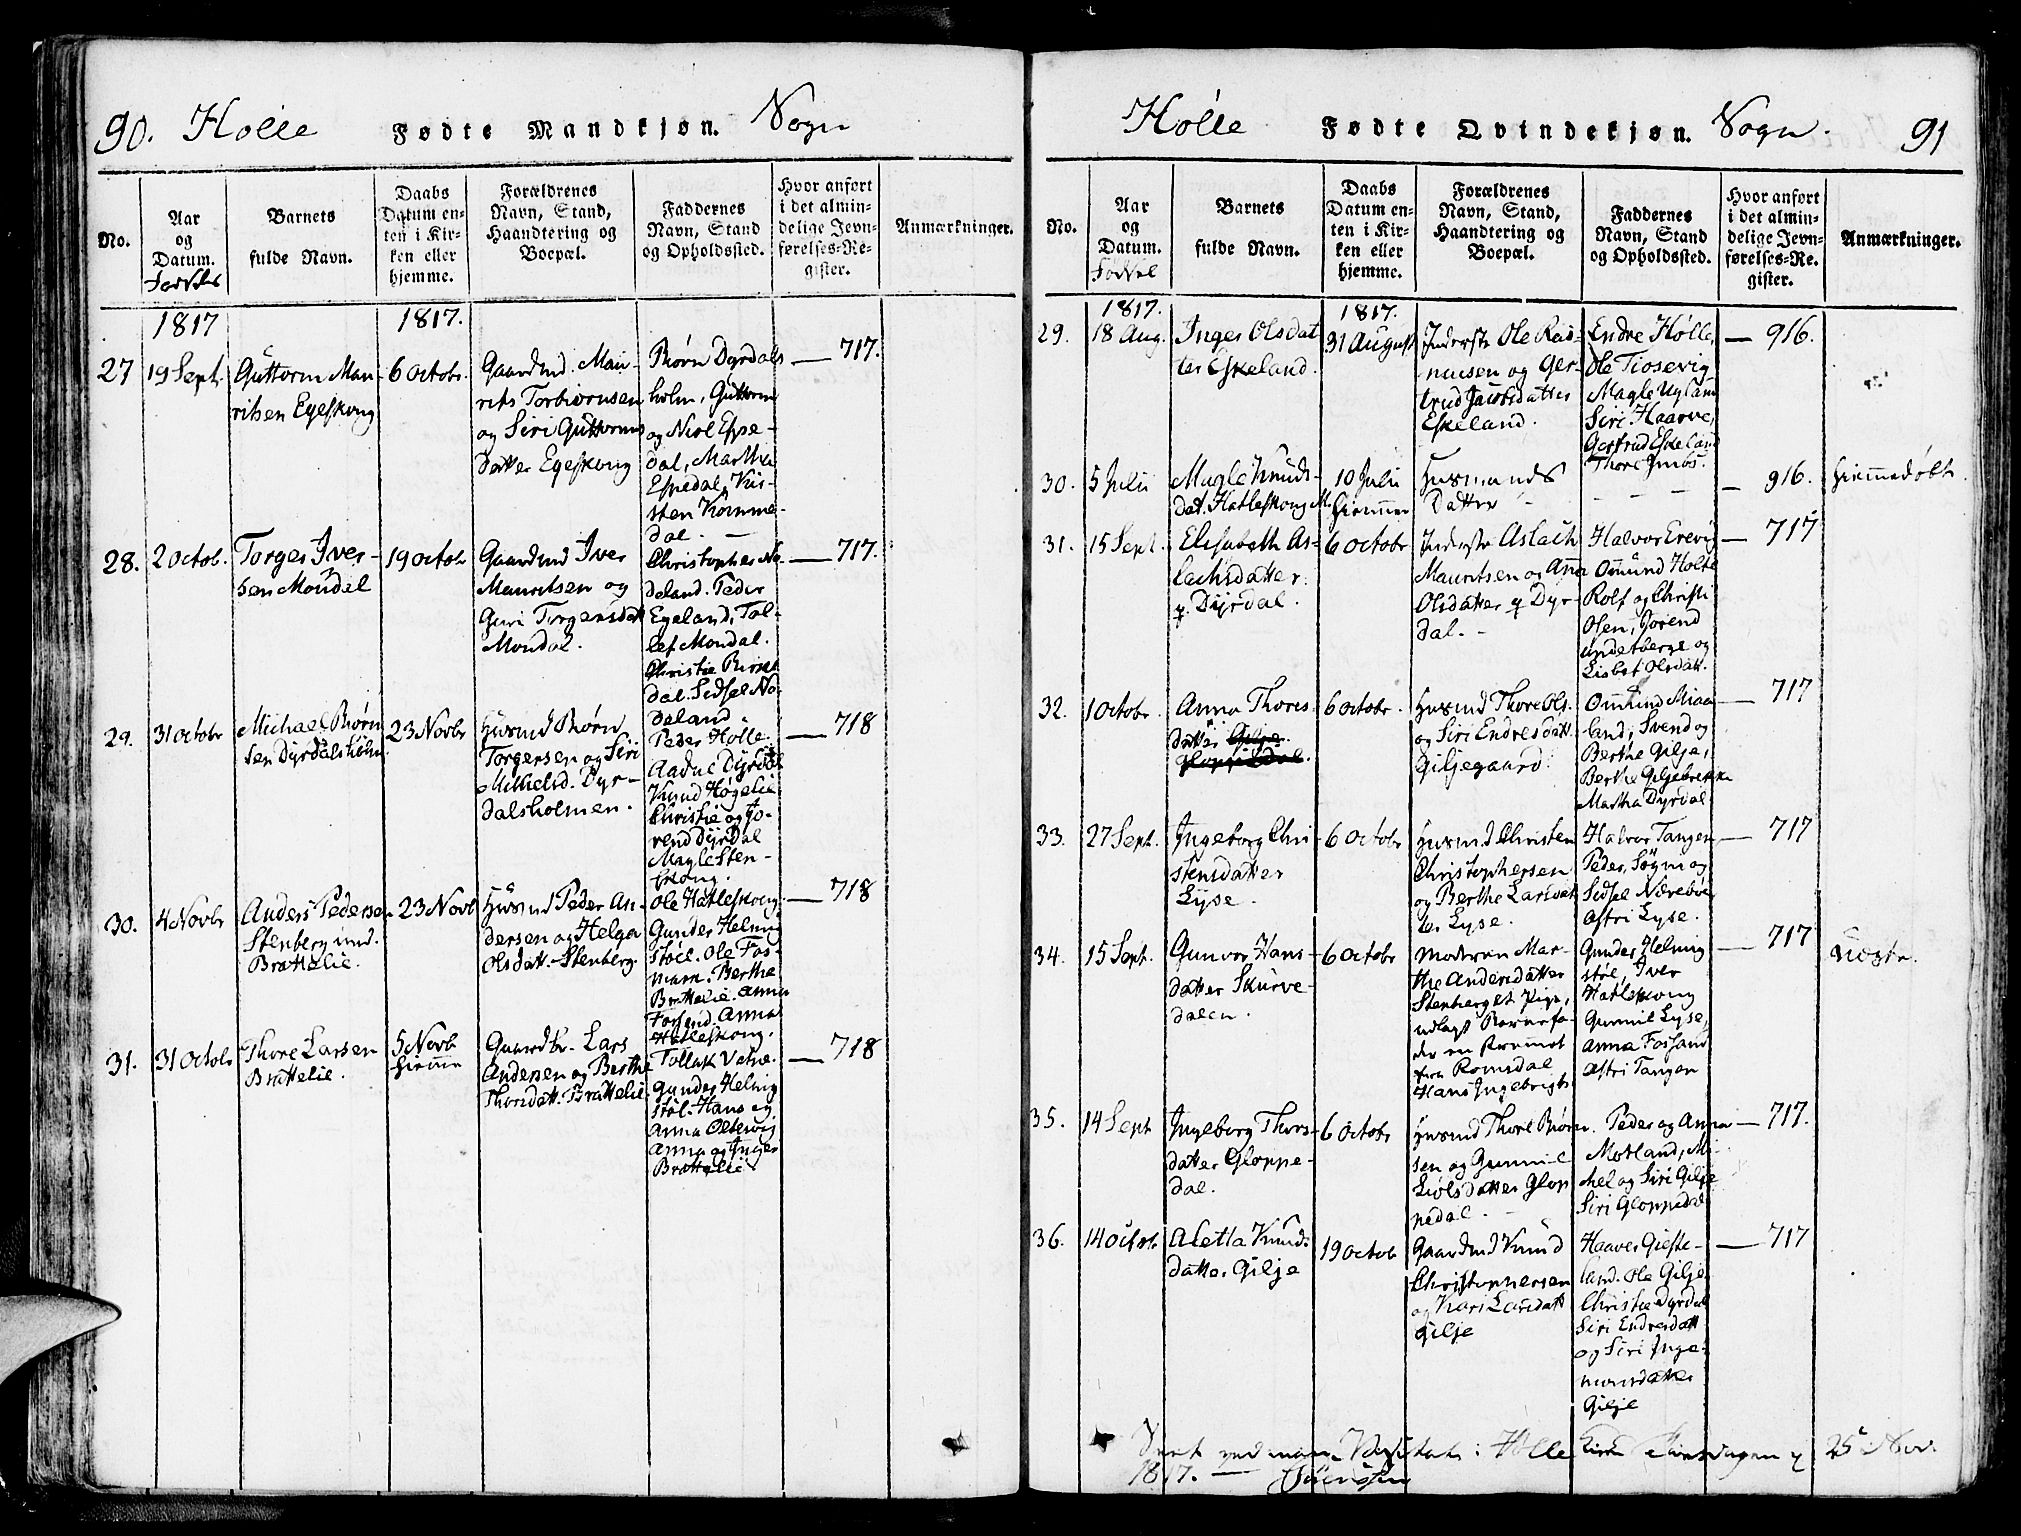 90. Holle Fødte Mandkjøn. Sogn
No.
Aar
og
Datum.
Fødsels
Barnets
fulde Navn.
Daabs
Datum en-
ten i Kir-
ken eller
hjemme.
Forældrenes
Navn, Stand,
Haandtering og
Boepæl.
Faddernes
Navn, Stand
og Opholdssted.
Hvor anført
i det almin-
delige Jevn-
førelses-Re-
gister.
Anmærkninger.
1817
1817.
27
19 Sept.
Guttorm Mau-
ritsen Egeskong
6 Octobr.
Gaardmd. Mau-
rits Torbiørnsen
og Siri Guttorms
datter Egeskong
Biørn Dyrdals
holm, Guttorm
og Niol Espe-
dal, Martha
Espedal, Kir-
sten Komme-
dal.
717.
28.
2 Octob.
Torger Iver-
sen Mondal
19 Octobr
Gaardmd Iver
Mauritsen og
Guri Torgersdatt
Mondal.
Christopher No-
deland. Peder
Egeland, Tol-
lef Mondal.
Christie
dal. Sidsel No-
deland
717.
29.
31 Octobr
Michael Biørn
sen Dyrdalsholm
23 Novbr
Husmd Biørn
Torgersen og Siri
Mikkelsd. Dyr-
dalsholmen.
Peder Holle.
Aadne Dyrdal
Knud Høgelie
Christie og Jo-
rend Dyrdal
Magle Sten-
718
30.
4 Novbr
Anders Pedersen
Stenberg und.
Brattelie.
23 Novb
Husmd Peder An-
dersen og Helga
Olsdatt. Stenberg.
Ole Hatleskong.
Gunder Helmig
støl. Ole Fos-
mark. Berthe
Brattelie. Anna
Fossand. Anna
Hatleskong.
718
31.
31 Octobr
Thore Larsen
Brattelie.
5 Novb
hiemme
Gaardbr. Lars
Andersen og Berthe
Thorsdatt. Brattelie.
Tollak Vatne.
Gunder Helmig
støl. Hans og
Anna Oltesvig
Anna og Inger
Brattelie
718
Hølle Fødte Qvindekjøn. Sogn. 91
No.
Aar
og
Datum.
Fødsel
Barnets
fulde Navn.
Daabs
Datum en-
ten i Kir-
ken eller
hjemme.
Forældrenes
Navn, Stand,
Haandtering og
Boepæl.
Faddernes
Navn, Stand
og Opholdssted.
Hvor anført
i det almin-
delige Jevn-
førelses-Re-
gister.
Anmærkninger.
1817.
1817.
29.
18 Aug.
Inger Olsdat
ter Eskeland.
31 August
Inderste Ole Ras-
musen og Ger-
trud Jacobsdatter
Eskeland.
Endre Hølle,
Ole Tiosevig
Magle Uglam
Siri Haarve,
Gertrud Eskeland
Thore
916.
30.
5 Julii
Magle Knuds-
dat. Hatleskong
10 Julii
hiemme
Husmands
datter
916.
hiemmedøbt.
31.
15 Sept.
Elisabeth As-
lachsdatter
q. Dyrdal.
6 Octobr
Inderste Aslach
Mauritsen og Ana
Olsdatter q Dyr-
dal.
Halvor Erevig
Omund Holte
Rolf og Christi
Olsen, Jorend
undetberge og
Lisbet Olsdatt.
717
32.
1 Octobr.
Anna Thores-
datter Gilje.
Gloppedal.
6 Octobr.
Husmd Thore Ols.
og Siri Endresdatt.
Giljegaard.
Ommund Miaa-
land, Svend og
Berthe Gilje,
Berthe Giljebrekke
Martha Dyrdal.
717
33.
27 Sept.
Ingeborg Chri
stensdatter
Lyse.
6 Octobr
Husmd Christen
Christophersen
og Berthe Larsdat
ter Lyse.
Halvor Tangen
Peder, Søgm og
Sidsel Nærebøe
Astri Lyse.
717
34.
15 Sept.
Gunvor Hans-
datter Skurve-
dalen.
6 Octobr
Moderen Mar-
the Andersdatter
Stenberget Pige,
udlagt Barnefa-
der en
fra Romsdal
Hans Ingebrigts
Gunder Helmig
støl, Iver
Hatleskong
Gunnil Lyse,
Anna Fossand
Astri Tangen
717
Uægte.
35.
14 Sept
Ingeborg Thors-
datter Gloppe-
dal.
6 Octobr
Husmd Thore Biørn.
sen og Gunnil
Liølsdatter Glop
pedal.
Peder og Anna
Motland, Mi-
chel og Siri Gilje
Siri Gloppedal
717.
36.
14 Octob.
Aletta Knuds
datter Gilje
19 Octob
Gaardmd Knud
Christophersen
og Kari Larsdatt
Gilje
Haaver Gieste-
land. Ole Gilje
Christie Dyrdal
Siri Endresdatt
og Siri Inge-
mundsdatter
Gilje
717
Seet ved min Visitats i Hølle Kirke Tirsdagen d. 25 Nov.
1817. Sørensen